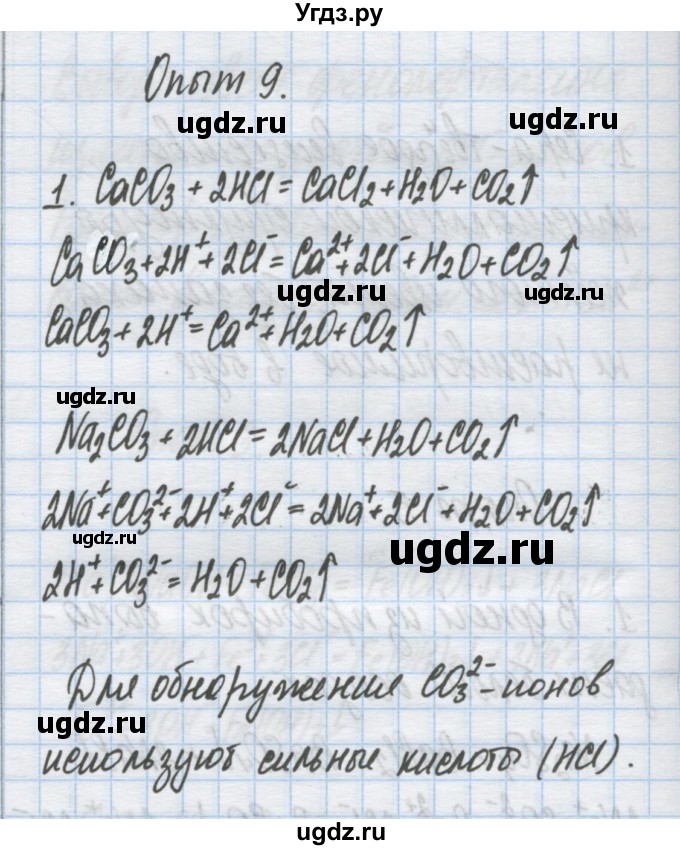 Угдз.ру
Опыт 9.
ugdz.ru
1. CaCO3 + 2HCl = CaCl2 + H2O + CO2↑
CaCO3 + 2H⁺ + 2Cl⁻ = Ca²⁺ + 2Cl⁻ + H2O + CO2↑
ugdz.ru
ugdz.ru
CaCO3 + 2H⁺ = Ca²⁺ + H2O + CO2↑
ugdz.ru
Na2CO3 + 2HCl = 2NaCl + H2O + CO2↑
2Na⁺ + CO3²⁻ + 2H⁺ + 2Cl⁻ = 2Na⁺ + 2Cl⁻ + H2O + CO2↑
ugdz.ru
ugdz.ru
2H⁺ + CO3²⁻ = H2O + CO2↑
Для обнаружения CO3²⁻-ионов
ugdz.ru
используют сильные кислоты (HCl).
ugdz.ru
ugdz.ru